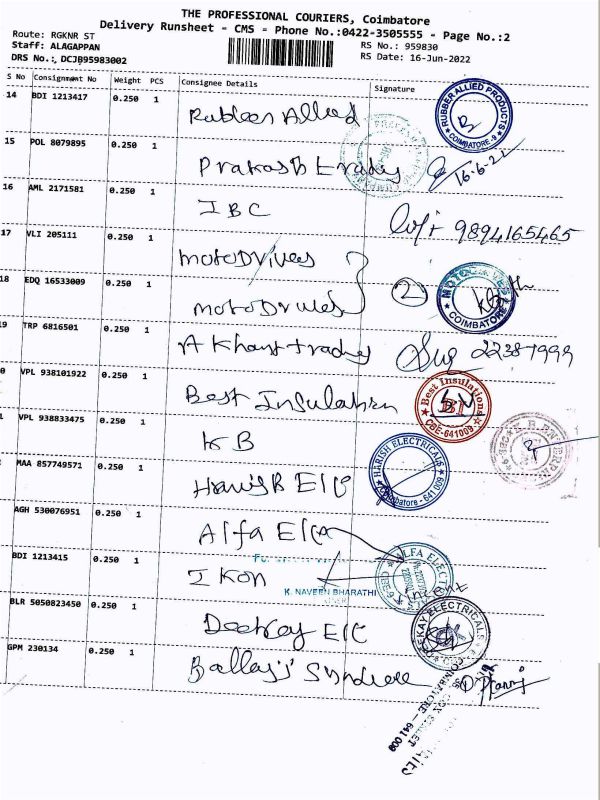 THE PROFESSIONAL COURIERS, Coimbatore
Delivery Runsheet - CMS - Phone No.:0422-3505555 - Page No.:2
Route: RGKNR ST
RS No.: 959830
Staff: ALAGAPPAN
RS Date: 16-Jun-2022
DRS No.: DCJB95983002
S No Consignment No Weight PCS Consignee Details Signature
14 BDI 1213417 0.250 1 Rubber Allied
RUBBER ALLIED PRODUCTS COIMBATORE-9
15 POL 8079895 0.250 1 Prakash 16.6.22
16 AML 2171581 0.250 1 IBC 9894165465
17 VLI 205111 0.250 1 motoDrives
18 EDQ 16533009 0.250 1 motoDrives 2
COIMBATORE
9 TRP 6816501 0.250 1 A Khant trading
0 VPL 938101922 0.250 1 Best Insulation
Best Insulations BI CBE-641009
1 VPL 938833475 0.250 1 K B
MAA 857749571 0.250 1 Harish Elc
HARISH ELECTRICALS Coimbatore - 641 009
AGH 530076951 0.250 1 Alfa Elc
ALFA ELECT
BDI 1213415 0.250 1 I Kon
K. NAVEEN BHARATHI
BLR 5050823450 0.250 1 Deekay Elc
EKAY ELECTRICALS
GPM 230134 0.250 1 Ballaji Syndicate
COIMBATORE - 641 009